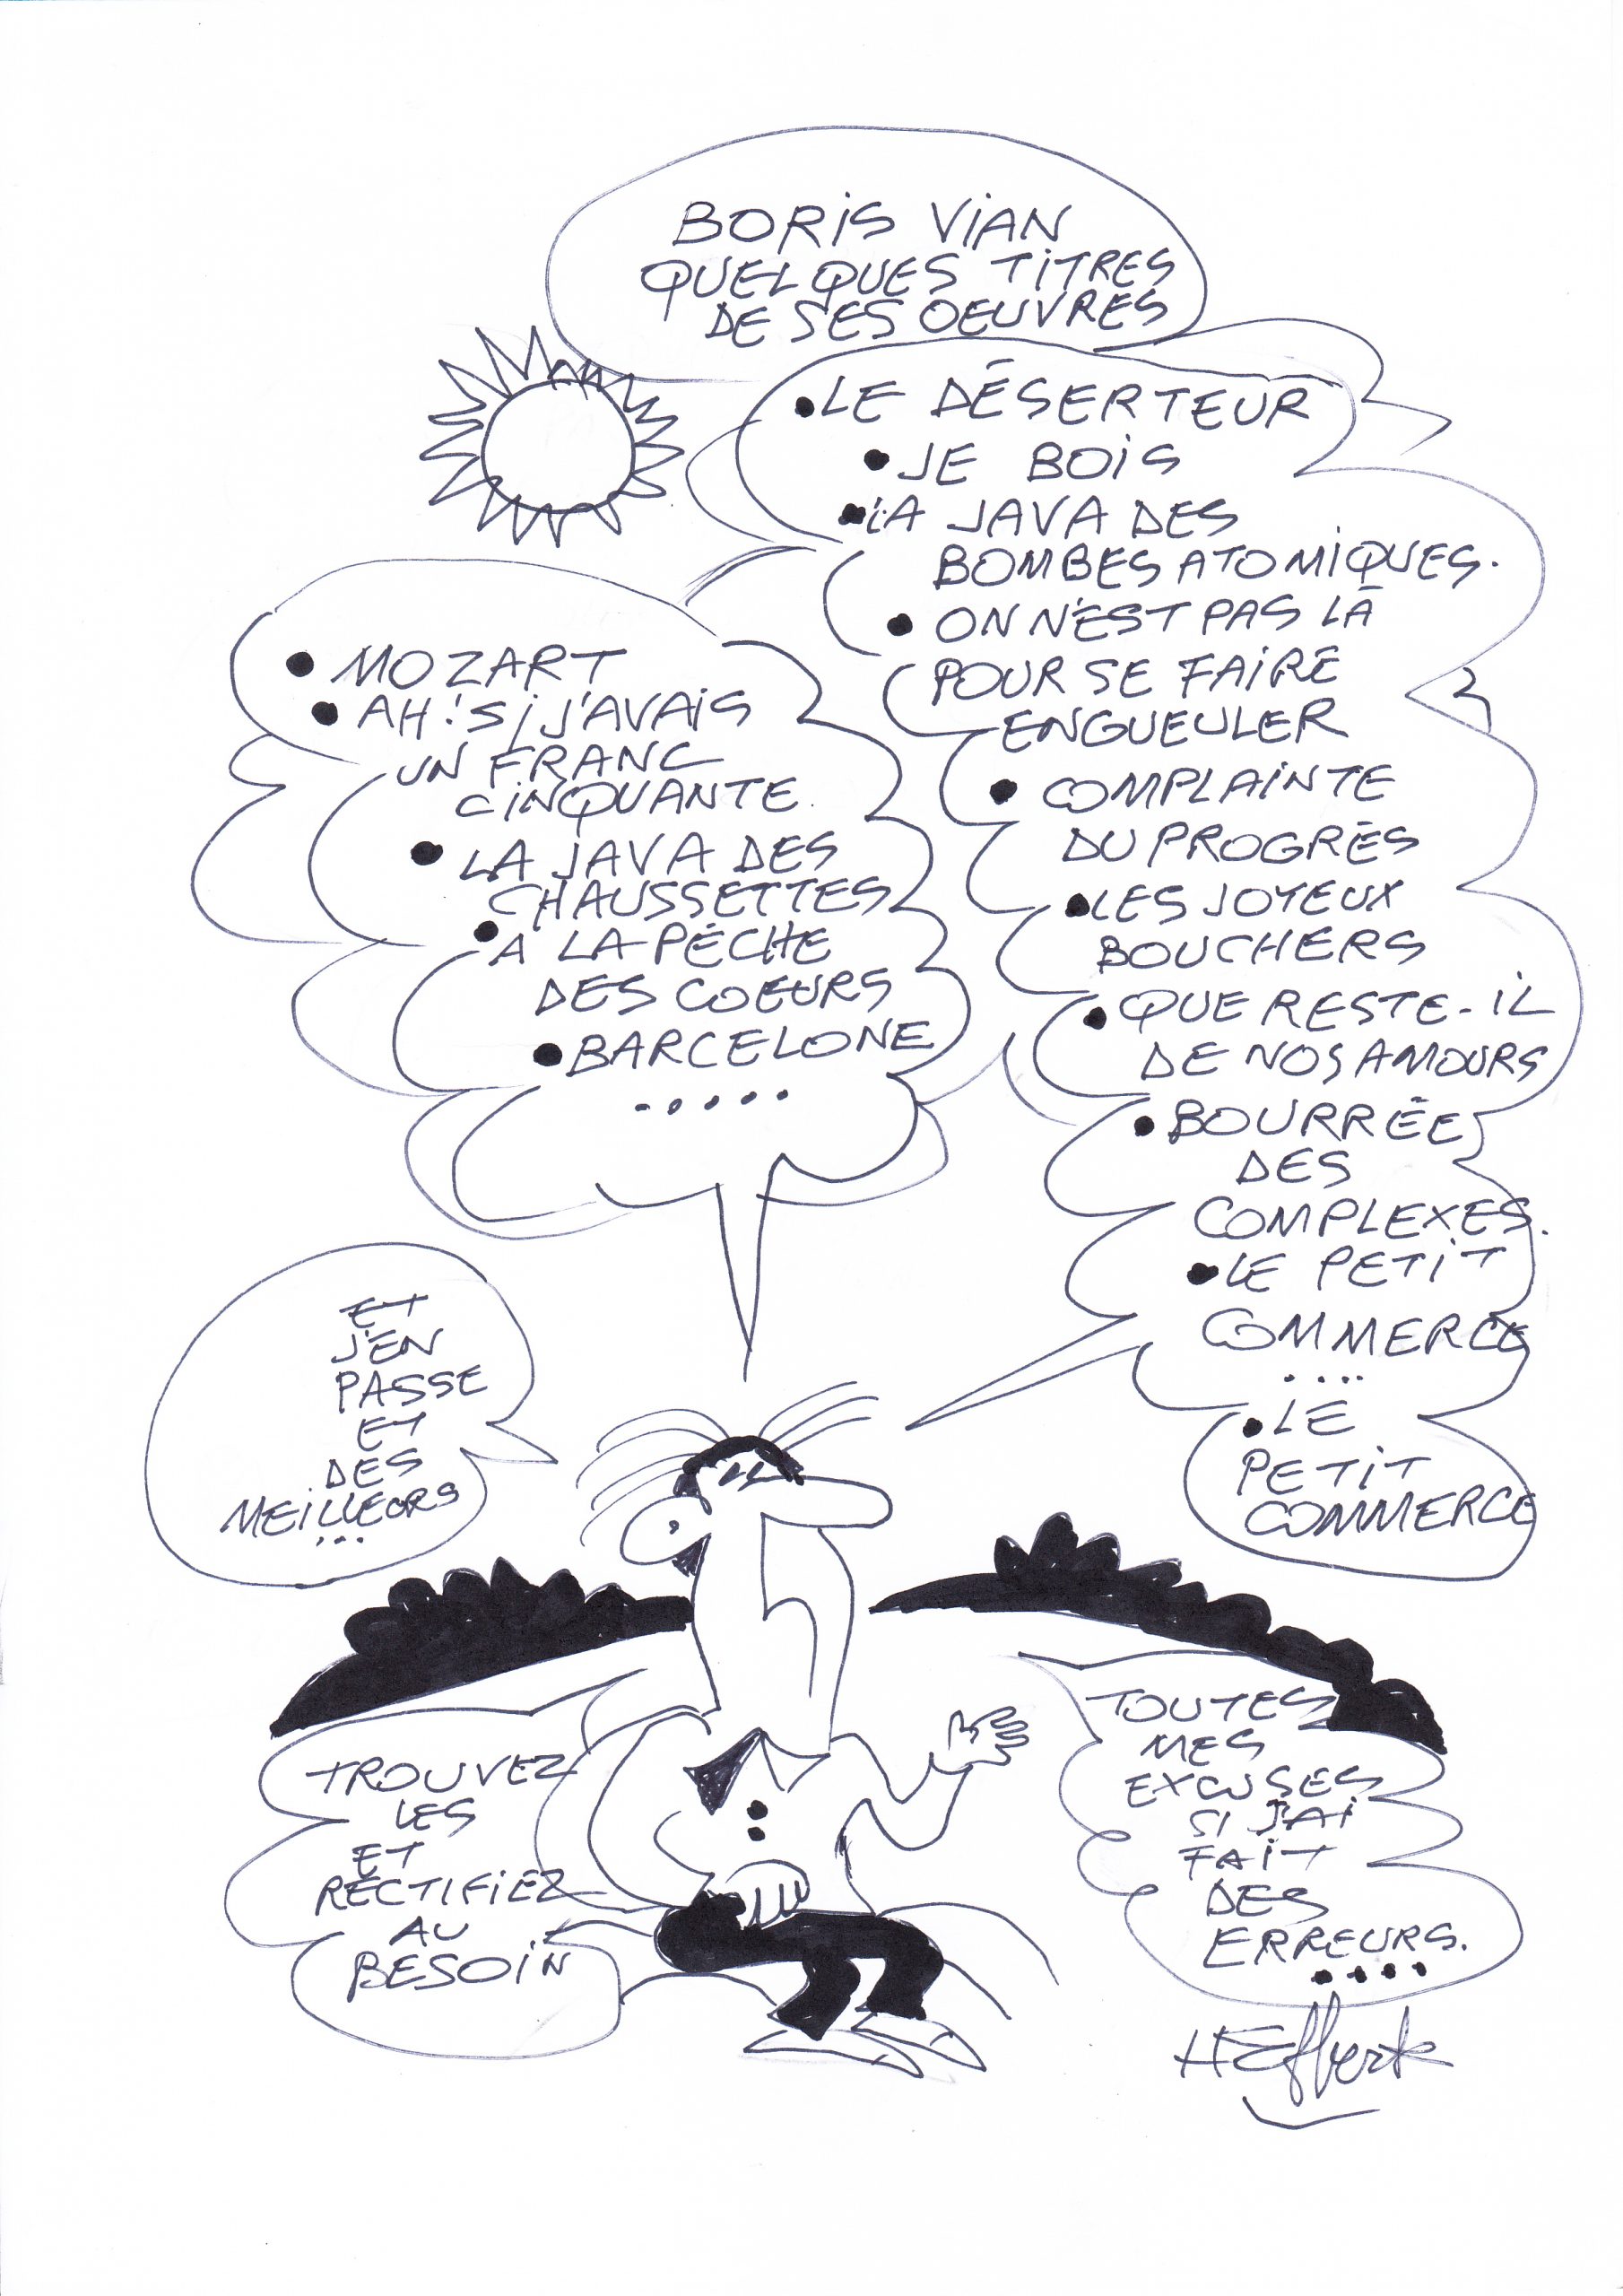 BORIS VIAN
QUELQUES TITRES
DE SES OEUVRES
• LE DÉSERTEUR
• JE BOIS
• LA JAVA DES
BOMBES ATOMIQUES.
• ON N'EST PAS LÀ
POUR SE FAIRE
ENGUEULER
• COMPLAINTE
DU PROGRÈS
• LES JOYEUX
BOUCHERS
• QUE RESTE-IL
DE NOS AMOURS
• BOURRÉE
DES
COMPLEXES.
• LE PETIT
COMMERCE
....
• LE
PETIT
COMMERCE
• MOZART
• AH! SI J'AVAIS
UN FRANC
CINQUANTE.
• LA JAVA DES
CHAUSSETTES
• A LA PÊCHE
DES COEURS
• BARCELONE
.....
ET
J'EN
PASSE
ET
DES
MEILLEURS
...
TROUVEZ
LES
ET
RECTIFIEZ
AU
BESOIN
TOUTES
MES
EXCUSES
SI J'AI
FAIT
DES
ERREURS.
....